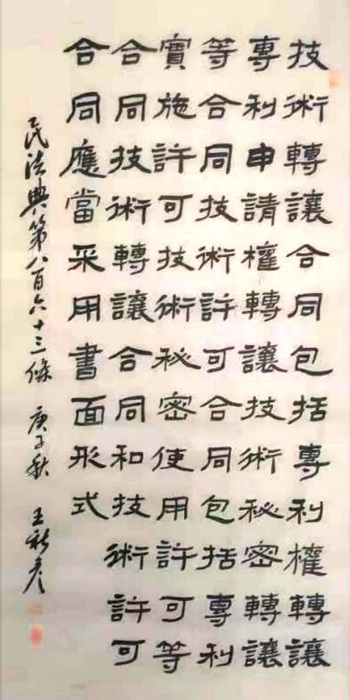 技術轉讓合同包括專利權轉讓
專利申請權轉讓技術秘密轉讓
等合同技術許可合同包括專利
實施許可技術秘密使用許可等
合同技術轉讓合同和技術許可
合同應當采用書面形式
民法典第八百六十三條 庚子秋 王